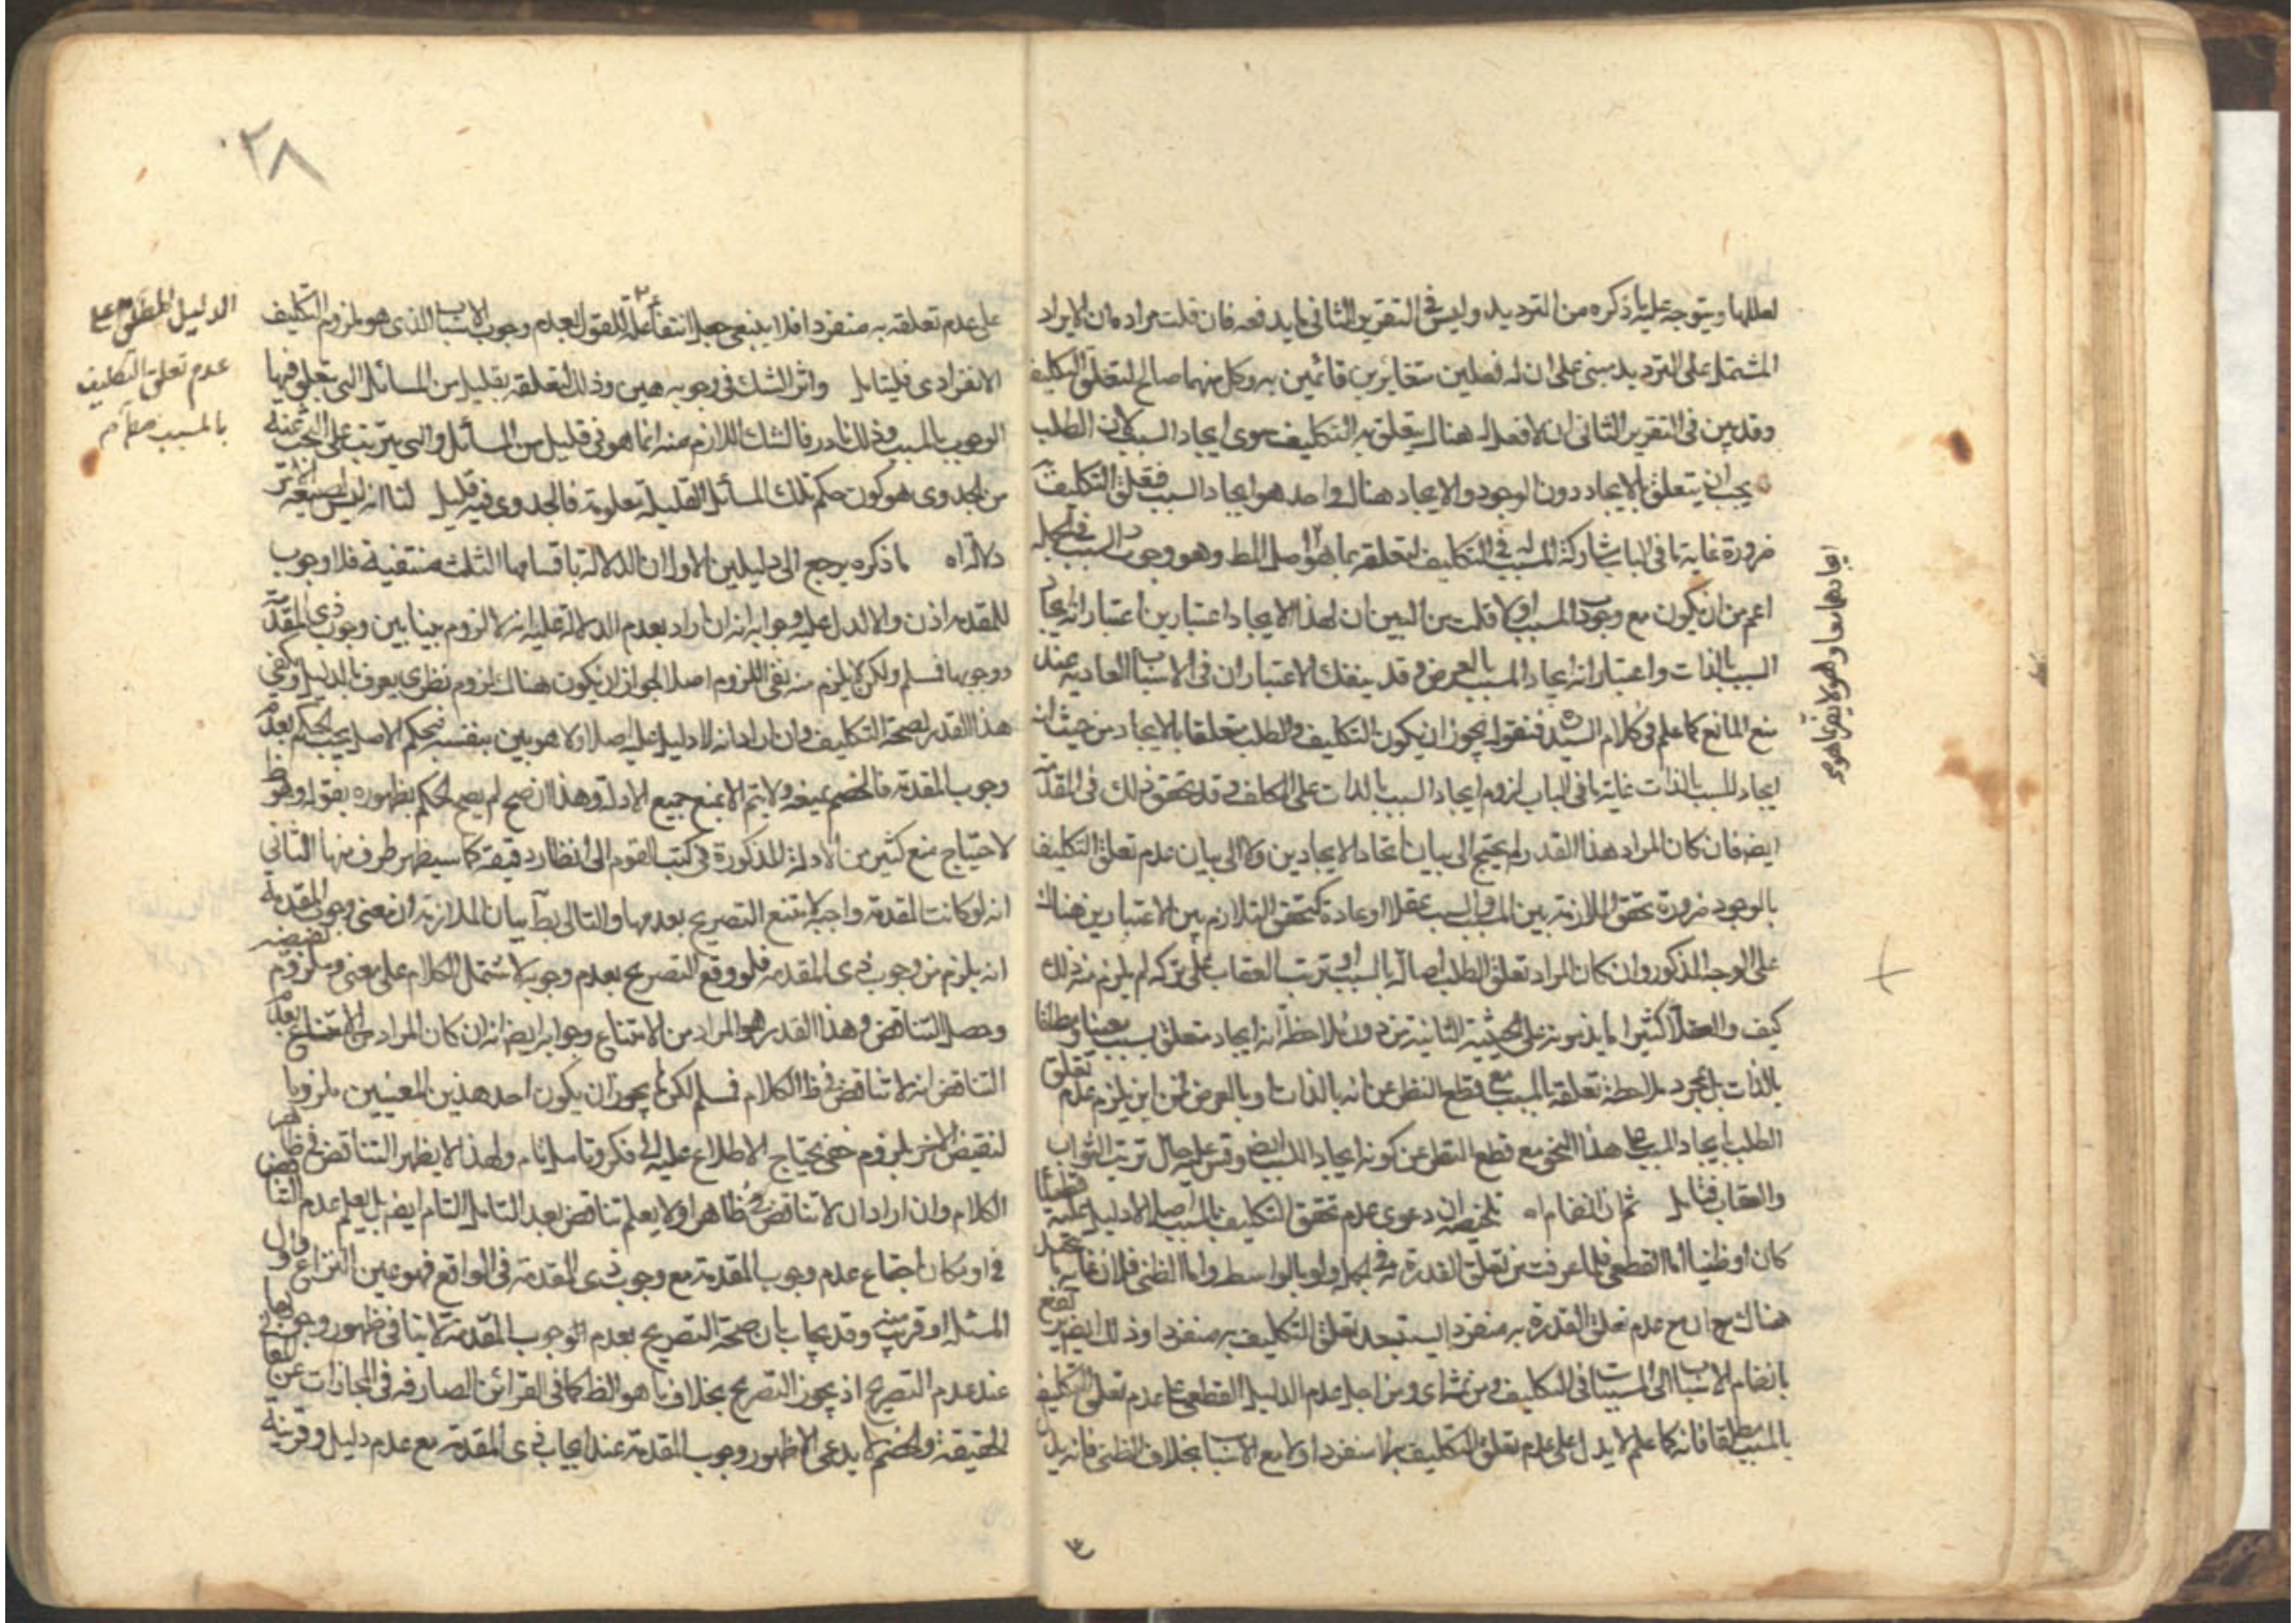 لعللها ويتوجه عليه ما ذكره من الترديد وليس في التقرير الثاني ما يدفعه فان قلت مراده ان الايراد
المشتمل على الترديد مبنى على ان له فعلين متغايرين قائمين به وكل منهما صالح لتعلق التكليف
وقد بين في التقرير الثاني ان لا فعل هناك يتعلق به التكليف سوى ايجاد السبب لان الطلب
يجب ان يتعلق بالايجاد دون الوجود والايجاد هناك واحد هو ايجاد السبب فتعلق التكليف
ضرورة غاية ما في الباب مشاركة المسبب له في التكليف لتعلقه بما هو اصل المط وهو وجوب السبب في الجملة
اعم من ان يكون مع وجوب المسبب او لا قلت من البين ان لهذا الايجاد اعتبارين اعتبار انه ايجاد
السبب بالذات واعتبار انه ايجاد المسبب بالعرض وقد ينفك الاعتباران في الاسباب العادية عند
منع المانع كما علم في كلام السيد فنقول يجوز ان يكون التكليف والطلب متعلقا بالايجاد من حيث انه
ايجاد للمسبب بالذات غاية ما في الباب لزوم ايجاد السبب بالذات على المكلف وقد تحقق ذلك في المقدمة
ايضه فان كان المراد هذا القدر لم يحتج الى بيان اتحاد الايجادين ولا الى بيان عدم تعلق التكليف
بالوجود ضرورة تحقق الملازمة بين المسبب والسبب عقلا او عادة كتحقق التلازم بين الاعتبارين هناك
على الوجه المذكور وان كان المراد تعلق الطلب اصالة بالسبب او ترتب العقاب على تركه لم يلزم من ذلك
كيف والعقلاء كثيرا ما يذمونه على الحيثية الثانية من دون ملاحظة انه ايجاد متعلق بسبب معينا ومطلقا
بالذات بل بمجرد ملاحظة تعلقه بالمسبب مع قطع النظر عن انه بالذات او بالعرض فمن اين يلزم عدم تعلق
الطلب بايجاد المسبب على هذا النحو مع قطع النظر عن كونه ايجاد السبب ايضه وقس عليه حال ترتب الثواب
والعقاب فتامل ثم ان انضمام اه تلخيصه ان دعوى عدم تحقق التكليف بالمسبب اصلا لا دليل عليه قطعيا
كان او ظنيا اما القطعي فلما عرفت من تعلق القدرة به في الجملة ولو بالواسطه واما الظني فلان غاية ما
هناك ح ان مع عدم تعلق القدرة به منفردا يستبعد تعلق التكليف به منفردا وذلك ايضه يرتفع
بانضمام الاسباب الى المسببات في التكليف ومن ثم اى ومن اجل عدم الدليل القطعي على عدم تعلق التكليف
بالمسبب مطلقا فانه كما علم لا يدل على عدم تعلق التكليف به لا منفردا ولا مع الاسباب بخلاف الظني فانه يدل
ايجادهما معا وهو لا يضرنا هو
٢٨
على عدم تعلقه به منفردا فلا ينبغي جعل انتفائه علة للقول بعدم وجوب الاسباب الذى هو ملزوم التكليف
الانفرادى فليتامل واثر الشك في وجوبه هين وذلك لتعلقه بقليل من المسائل التي يتعلق فيها
الوجوب بالمسبب وذلك نادر فالشك اللازم منه انما هو في قليل من المسائل والتي يترتب على البحث عنه
من الجدوى هو كون حكم تلك المسائل القليلة معلومة فالجدوى فيه قليل لنا انه ليس لصيغة الامر
دلالة اه ما ذكره يرجع الى دليلين الاول ان الدلالة باقسامها الثلث منتفية فلا وجوب
للمقدمة اذن والا لدل عليه وجوابه انه ان اراد بعدم الدلالة عليه انه لا لزوم بينا بين وجوب ذى المقدمة
ووجوبها فمسلم ولكن لا يلزم منه نفي اللزوم اصلا لجواز ان يكون هناك لزوم نظرى يعرف بالدليل ويكفي
هذا القدر لصحة التكليف وان اراد انه لا دليل عليه اصلا ولا هو بين بنفسه فبحكم الاصل يجب الحكم بعدم
وجوب المقدمة فالخصم يمنعه ولا يتم الا بمنع جميع الادلة وهذا ان صح لم يصح الحكم بظهوره بقوله وهو ظ
لاحتياج منع كثير من الادلة المذكورة في كتب القوم الى انظار دقيقة كما سيظهر طرف منها الثاني
انه لو كانت المقدمة واجبة لامتنع التصريح بعدمها والتالى بط بيان الملازمة ان معنى وجوب المقدمة
انه يلزم من وجوب ذى المقدمة فلو وقع التصريح بعدم وجوبه لاشتمل الكلام على معنى وملزوم نقيضه
وحصل التناقض وهذا القدر هو المراد من الامتناع وجوابه ايضه انه ان كان المراد من الامتناع بعدم
التناقض انه لا تناقض في ظ الكلام فمسلم لكن لم يجوز ان يكون احد هذين المعنيين ملزوما
لنقيض الاخر بلزوم خفي يحتاج الاطلاع عليه الى فكر وتامل تام ولهذا لا يظهر التناقض في ظاهر
الكلام وان اراد ان لا تناقض فيه ظاهرا ولا يعلم تناقض بعد التامل التام ايضه بل يعلم عدم التناقض
في او مكان اجتماع عدم وجوب المقدمة مع وجوب ذى المقدمة في الواقع فهو عين النزاع واول
المسئلة او قريب منه وقد يجاب بان صحة التصريح بعدم الوجوب المقدمة لا ينافي ظهور وجوبها
عند عدم التصريح اذ يجوز التصريح بخلاف ما هو الظ كما في القرائن الصارفه في المجازات عن المعاني
الحقيقة والخصم لا يدعى الا ظهور وجوب المقدمة عند ايجاب ذى المقدمة مع عدم دليل وقرينة
الدليل المظنون على
عدم تعلق التكليف
بالمسبب